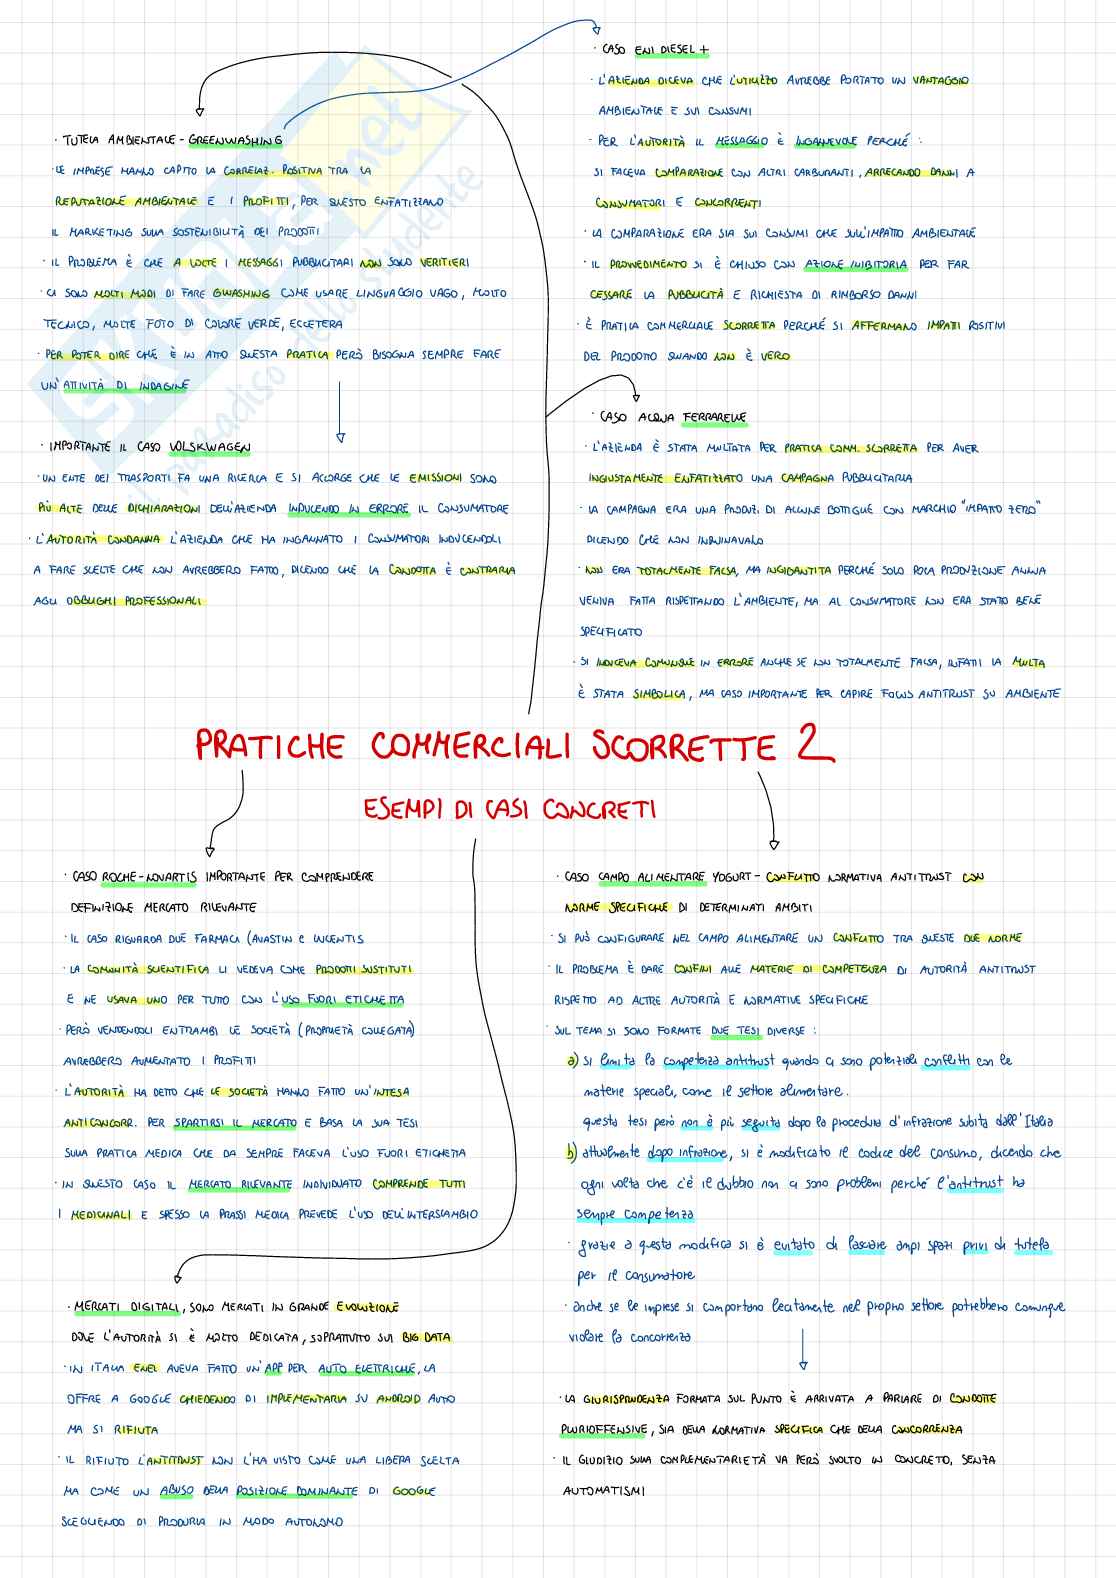 · TUTELA AMBIENTALE - GREENWASHING
· LE IMPRESE HANNO CAPITO LA CORRELAZ. POSITIVA TRA LA
REPUTAZIONE AMBIENTALE E I PROFITTI, PER QUESTO ENFATIZZANO
IL MARKETING SULLA SOSTENIBILITÀ DEI PRODOTTI
· IL PROBLEMA È CHE A VOLTE I MESSAGGI PUBBLICITARI NON SONO VERITIERI
· CI SONO MOLTI MODI DI FARE GWASHING COME USARE LINGUAGGIO VAGO, MOLTO
TECNICO, MOLTE FOTO DI COLORE VERDE, ECCETERA
· PER POTER DIRE CHE È IN ATTO QUESTA PRATICA PERÒ BISOGNA SEMPRE FARE
UN'ATTIVITÀ DI INDAGINE
· IMPORTANTE IL CASO VOLSKWAGEN
· UN ENTE DEI TRASPORTI FA UNA RICERCA E SI ACCORGE CHE LE EMISSIONI SONO
PIÙ ALTE DELLE DICHIARAZIONI DELL'AZIENDA INDUCENDO IN ERRORE IL CONSUMATORE
· L'AUTORITÀ CONDANNA L'AZIENDA CHE HA INGANNATO I CONSUMATORI INDUCENDOLI
A FARE SCELTE CHE NON AVREBBERO FATTO, DICENDO CHE LA CONDOTTA È CONTRARIA
AGLI OBBLIGHI PROFESSIONALI
· CASO ENI DIESEL +
· L'AZIENDA DICEVA CHE L'UTILIZZO AVREBBE PORTATO UN VANTAGGIO
AMBIENTALE E SUI CONSUMI
· PER L'AUTORITÀ IL MESSAGGIO È INGANNEVOLE PERCHÉ :
SI FACEVA COMPARAZIONE CON ALTRI CARBURANTI, ARRECANDO DANNI A
CONSUMATORI E CONCORRENTI
· LA COMPARAZIONE ERA SIA SUI CONSUMI CHE SULL'IMPATTO AMBIENTALE
· IL PROVVEDIMENTO SI È CHIUSO CON AZIONE INIBITORIA PER FAR
CESSARE LA PUBBLICITÀ E RICHIESTA DI RIMBORSO DANNI
· È PRATICA COMMERCIALE SCORRETTA PERCHÉ SI AFFERMANO IMPATTI POSITIVI
DEL PRODOTTO QUANDO NON È VERO
· CASO ACQUA FERRARELLE
· L'AZIENDA È STATA MULTATA PER PRATICA COMM. SCORRETTA PER AVER
INGIUSTAMENTE ENFATIZZATO UNA CAMPAGNA PUBBLICITARIA
· LA CAMPAGNA ERA UNA PRODUZ. DI ALCUNE BOTTIGLIE CON MARCHIO "IMPATTO ZERO"
DICENDO CHE NON INQUINAVANO
· NON ERA TOTALMENTE FALSA, MA INGIGANTITA PERCHÉ SOLO POCA PRODUZIONE ANNUA
VENIVA FATTA RISPETTANDO L'AMBIENTE, MA AL CONSUMATORE NON ERA STATO BENE
SPECIFICATO
· SI INDUCEVA COMUNQUE IN ERRORE ANCHE SE NON TOTALMENTE FALSA, INFATTI LA MULTA
È STATA SIMBOLICA, MA CASO IMPORTANTE PER CAPIRE FOCUS ANTITRUST SU AMBIENTE
PRATICHE COMMERCIALI SCORRETTE 2
ESEMPI DI CASI CONCRETI
· CASO ROCHE-NOVARTIS IMPORTANTE PER COMPRENDERE
DEFINIZIONE MERCATO RILEVANTE
· IL CASO RIGUARDA DUE FARMACI (AVASTIN E LUCENTIS
· LA COMUNITÀ SCIENTIFICA LI VEDEVA COME PRODOTTI SUSTITUTI
E NE USAVA UNO PER TUTTO CON L'USO FUORI ETICHETTA
· PERÒ VENDENDOLI ENTRAMBI LE SOCIETÀ (PROPRIETÀ COLLEGATA)
AVREBBERO AUMENTATO I PROFITTI
· L'AUTORITÀ HA DETTO CHE LE SOCIETÀ HANNO FATTO UN'INTESA
ANTICONCORR. PER SPARTIRSI IL MERCATO E BASA LA SUA TESI
SULLA PRATICA MEDICA CHE DA SEMPRE FACEVA L'USO FUORI ETICHETTA
· IN QUESTO CASO IL MERCATO RILEVANTE INDIVIDUATO COMPRENDE TUTTI
I MEDICINALI E SPESSO LA PRASSI MEDICA PREVEDE L'USO DELL'INTERSCAMBIO
· MERCATI DIGITALI, SONO MERCATI IN GRANDE EVOLUZIONE
DOVE L'AUTORITÀ SI È MOLTO DEDICATA, SOPRATTUTTO SUI BIG DATA
· IN ITALIA ENEL AVEVA FATTO UN'APP PER AUTO ELETTRICHE, LA
OFFRE A GOOGLE CHIEDENDO DI IMPLEMENTARLA SU ANDROID AUTO
MA SI RIFIUTA
· IL RIFIUTO L'ANTITRUST NON L'HA VISTO COME UNA LIBERA SCELTA
MA COME UN ABUSO DELLA POSIZIONE DOMINANTE DI GOOGLE
SCEGLIENDO DI PRODURLA IN MODO AUTONOMO
· CASO CAMPO ALIMENTARE YOGURT - CONFLITTO NORMATIVA ANTITRUST CON
NORME SPECIFICHE DI DETERMINATI AMBITI
· SI PUÒ CONFIGURARE NEL CAMPO ALIMENTARE UN CONFLITTO TRA QUESTE DUE NORME
· IL PROBLEMA È DARE CONFINI ALLE MATERIE DI COMPETENZA DI AUTORITÀ ANTITRUST
RISPETTO AD ALTRE AUTORITÀ E NORMATIVE SPECIFICHE
· SUL TEMA SI SONO FORMATE DUE TESI DIVERSE :
a) si limita la competenza antitrust quando ci sono potenziali conflitti con le
materie speciali, come il settore alimentare.
questa tesi però non è più seguita dopo la procedura d'infrazione subita dall'Italia
b) attualmente dopo infrazione, si è modificato il codice del consumo, dicendo che
ogni volta che c'è il dubbio non ci sono problemi perché l'antitrust ha
sempre competenza
· grazie a questa modifica si è evitato di lasciare ampi spazi privi di tutela
per il consumatore
· anche se le imprese si comportano lecitamente nel proprio settore potrebbero comunque
violare la concorrenza
· LA GIURISPRUDENZA FORMATA SUL PUNTO È ARRIVATA A PARLARE DI CONDOTTE
PLURIOFFENSIVE, SIA DELLA NORMATIVA SPECIFICA CHE DELLA CONCORRENZA
· IL GIUDIZIO SULLA COMPLEMENTARIETÀ VA PERÒ SVOLTO IN CONCRETO, SENZA
AUTOMATISMI
SKUOLA.net
il paradiso dello studente